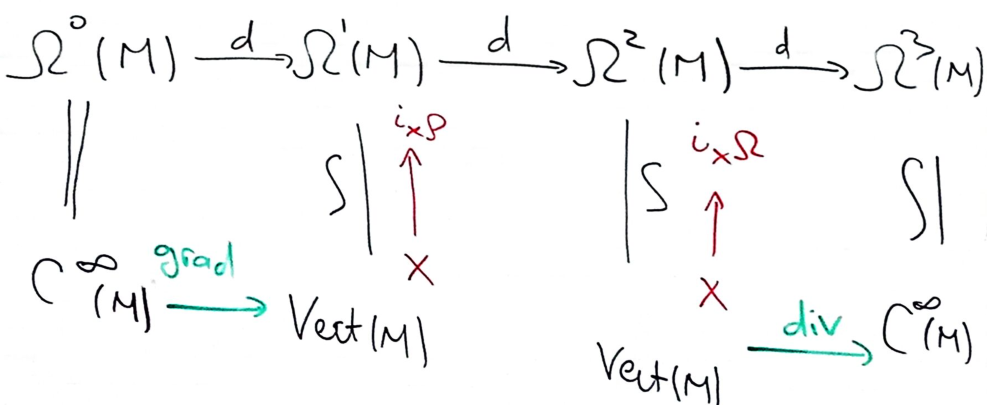 Ω⁰(M) d→ Ω¹(M) d→ Ω²(M) d→ Ω³(M)
i_xρ i_xΩ
X X
C^∞(M) grad→ Vect(M)
Vect(M) div→ C^∞(M)